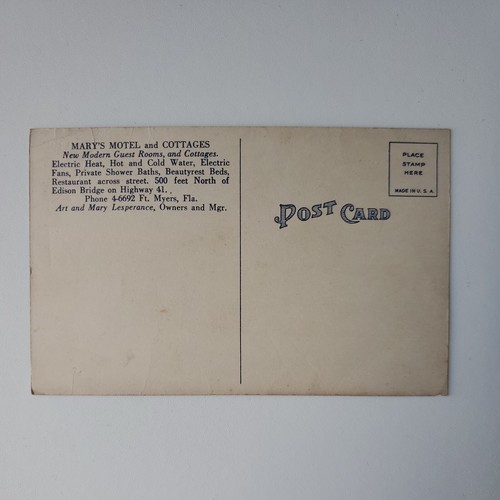 MARY'S MOTEL and COTTAGES
New Modern Guest Rooms, and Cottages.
Electric Heat, Hot and Cold Water, Electric
Fans, Private Shower Baths, Beautyrest Beds,
Restaurant across street. 500 feet North of
Edison Bridge on Highway 41. .
Phone 4-6692 Ft. Myers, Fla.
Art and Mary Lesperance, Owners and Mgr.
POST CARD
PLACE
STAMP
HERE
MADE IN U. S. A.